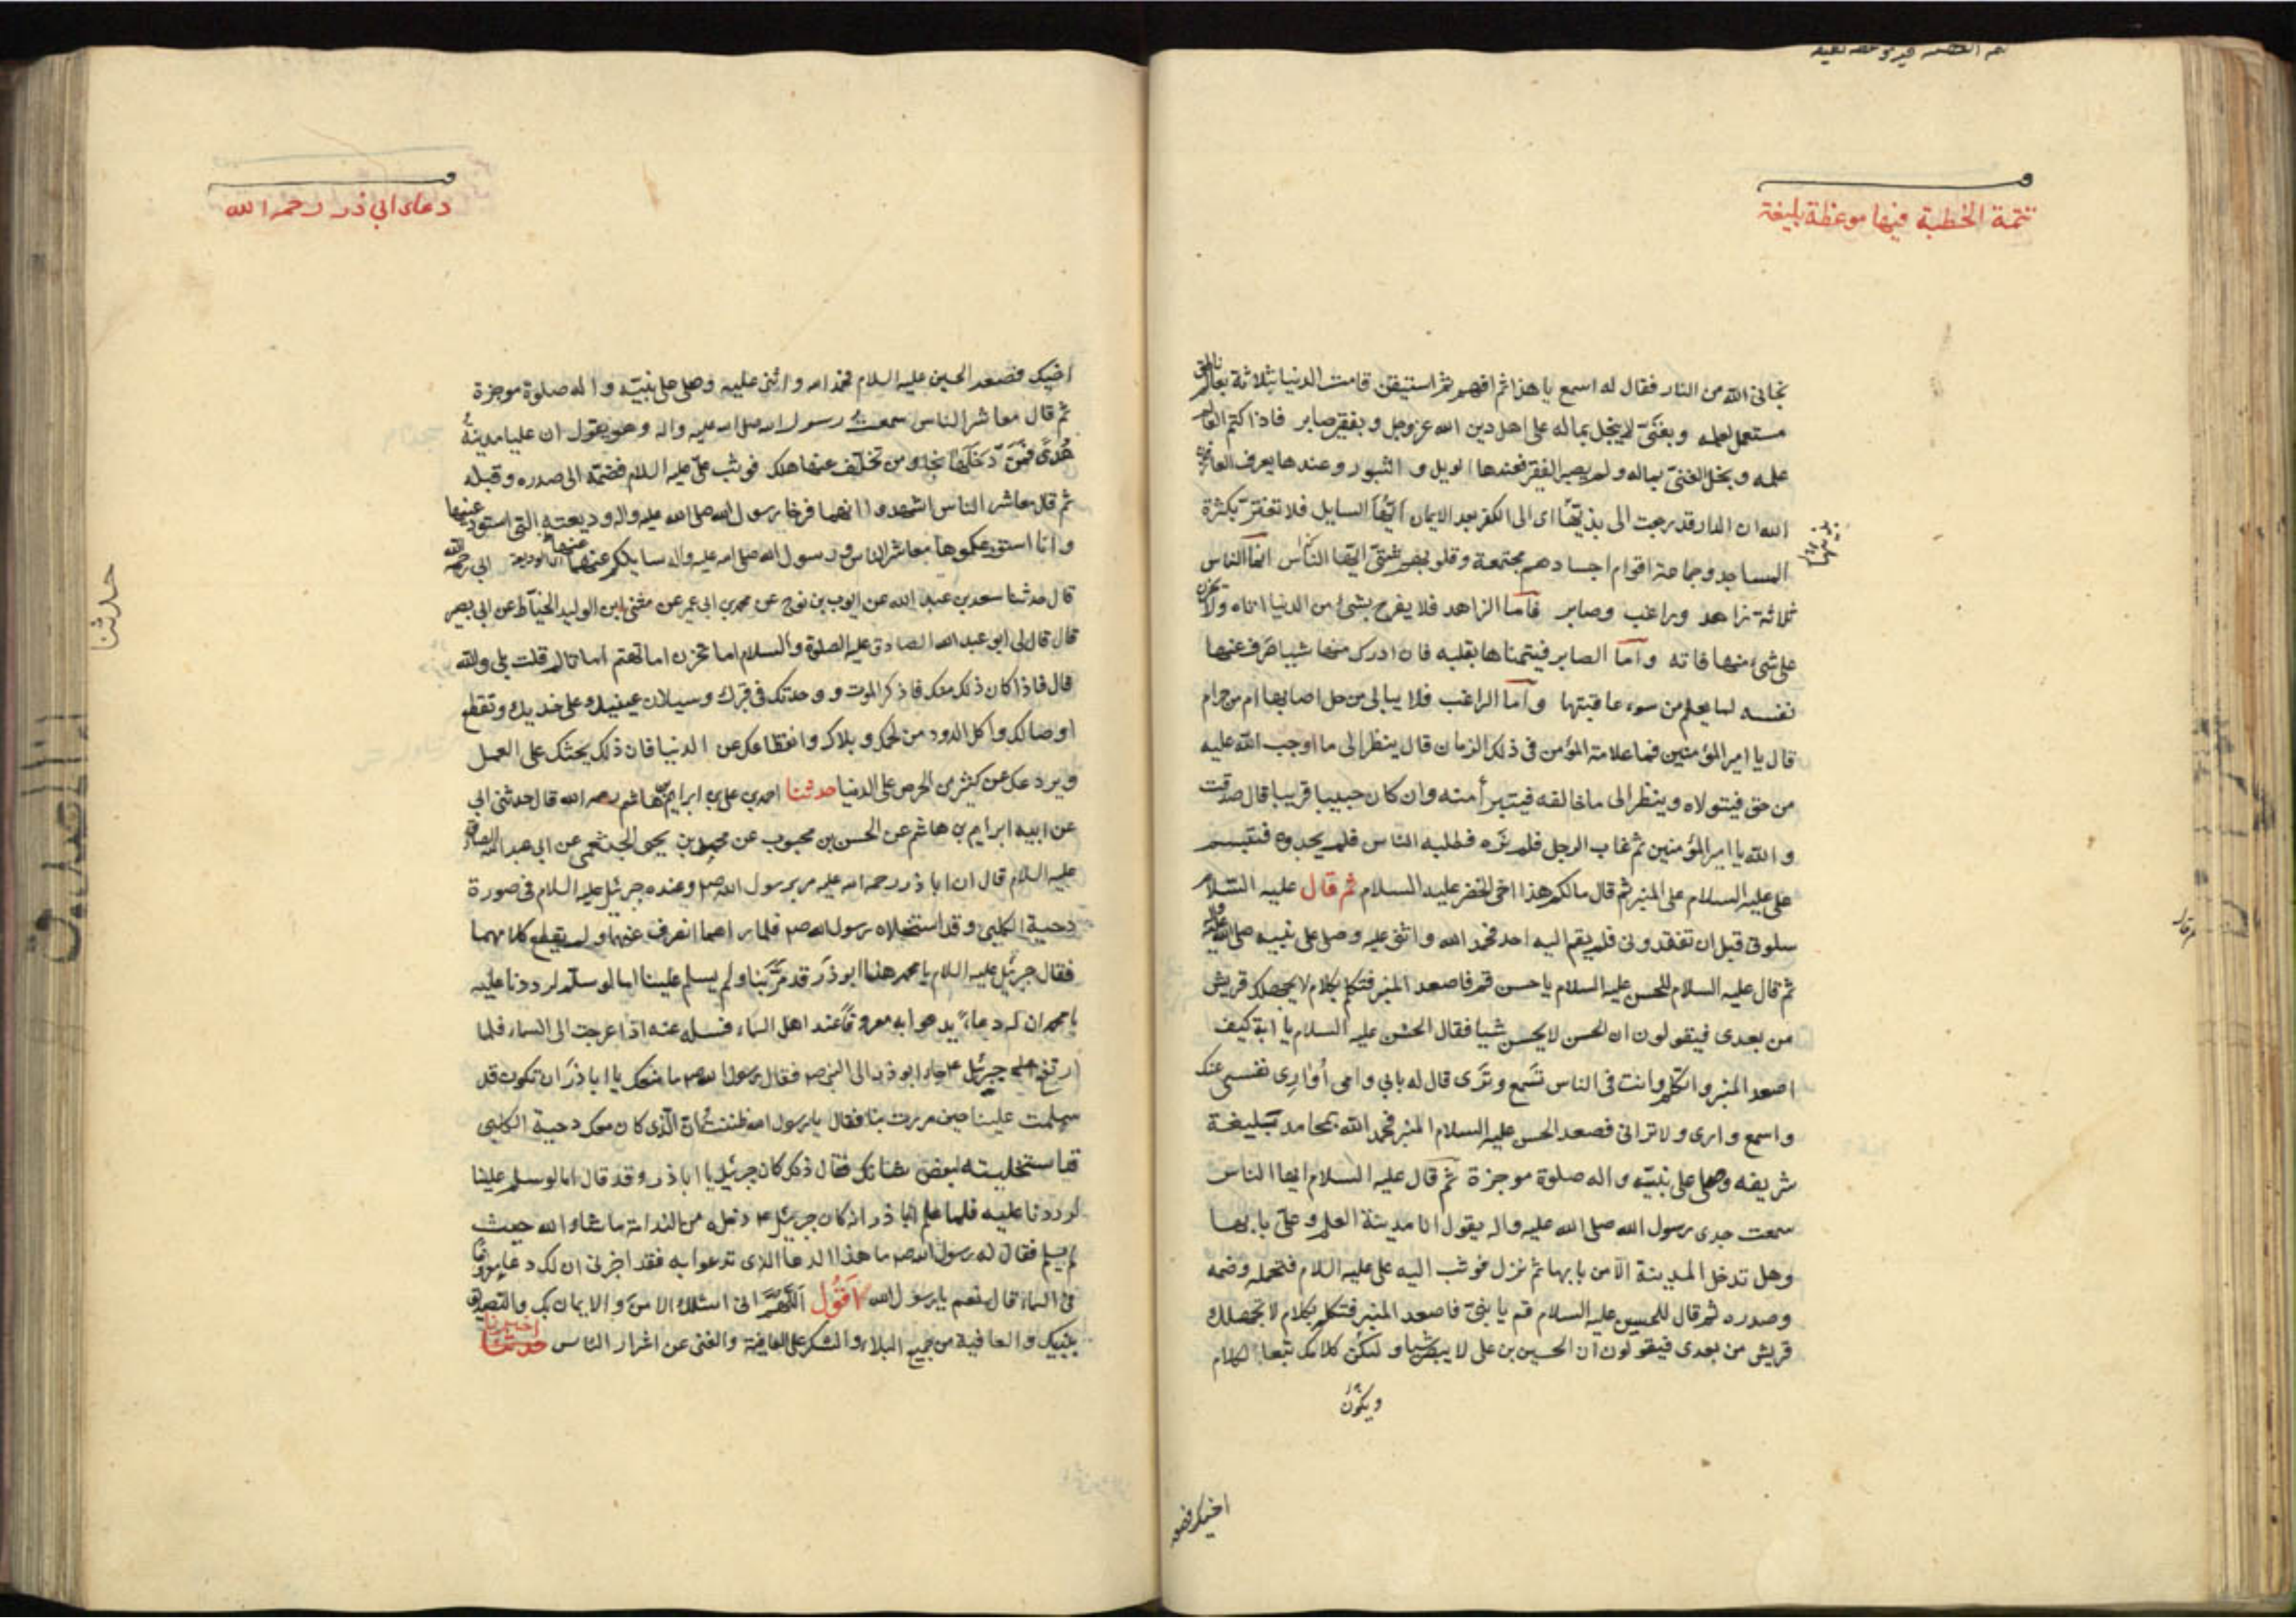 تتمة الخطبة فيها موعظة بليغة
نجانى الله من النار فقال له اسمع يا هذا ثم افهم ثم استيقن قامت الدنيا بثلاثة بعالم ناطق
مستعمل لعلمه وبغنىّ لا يبخل بماله على اهل دين الله عز وجل وبفقير صابر فاذا كتم العالم
علمه وبخل الغنىّ بماله ولم يصبر الفقير فعندها الويل و الثبور وعندها يعرف العارفون
الله ان الدار قد رجعت الى بدئها اى الى الكفر بعد الايمان ايّها السايل فلا تغترّ بكثرة
المساجد وجماعة اقوام اجسادهم مجتمعة وقلوبهم شتىّ ايّها النّاس انمّا الناس
ثلاثة زاهد وراغب وصابر فامّا الزاهد فلا يفرح بشئ من الدنيا اتاه ولا يحزن
على شئ منها فاته وامّا الصابر فيتمناها بقلبه فان ادرك منها شيئا صرف عنها
نفسه لما يعلم من سوء عاقبتها وامّا الراغب فلا يبالى من حل اصابها ام من حرام
قال يا امير المؤمنين فما علامة المؤمن فى ذلك الزمان قال ينظر الى ما اوجب الله عليه
من حق فيتولاه وينظر الى ما خالفه فيتبرأ منه وان كان حبيبا قريبا قال صدقت
و الله يا امير المؤمنين ثم غاب الرجل فلم نره فطلبه النّاس فلم يجدوه فتبسم
على عليه السلام على المنبر ثم قال مالكم هذا اخى الخضر عليه السلام ثم قال عليه السّلام
سلونى قبل ان تفقدونى فلم يقم اليه احد فحمد الله واثنى عليه وصلى على نبيه صلى الله عليه واله
ثم قال عليه السلام للحسن عليه السلام يا حسن قم فاصعد المنبر فتكلم بكلام لا يجهلك قريش
من بعدى فيقولون ان الحسن لا يحسن شيا فقال الحسن عليه السلام يا ابة كيف
اصعد المنبر واتكلم وانت فى الناس تسمع وترى قال له بابى وامى أوارى نفسى عنك
واسمع وارى ولا ترانى فصعد الحسن عليه السلام المنبر فحمد الله بمحامد بليغة
شريفه وصلى على نبيّه واله صلوة موجزة ثم قال عليه السلام ايها الناس
سمعت جدى رسول الله صلى الله عليه واله يقول انا مدينة العلم وعلىّ بابها
وهل تدخل المدينة الاّ من بابها ثم نزل فوثب اليه على عليه السلام فتحمله وضمه
وصدره ثم قال للحسين عليه السلام قم يا بنىّ فاصعد المنبر فتكلم بكلام لا تجهلك
قريش من بعدى فيقولون ان الحسين بن على لا يبصر شيا وليكن كلامك تبعا لكلام
ويكون
اخيك فصعد
دعاء ابي ذر رحمه الله
اخيك فصعد الحسين عليه السلام فحمد الله واثنى عليه وصلى على نبيّه واله صلوة موجزة
ثم قال معاشر الناس سمعت رسول الله صلى الله عليه واله وهو يقول ان عليا مدينة
هُدىً فمن دخلها نجا ومن تخلّف عنها هلك فوثب علىّ عليه السلام فضمّه الى صدره وقبله
ثم قال معاشر الناس اشهدوا انهما فرخا رسول الله صلى الله عليه واله وديعته التى استودعنيها
وانا استودعكموها معاشر الناس ورسول الله صلى الله عليه واله سايلكم عنهما ابى رحمه الله
قال حدثنا سعد بن عبد الله عن ايوب بن نوح عن محمد بن ابى عمير عن مثنى بن الوليد الحنّاط عن ابى بصير
قال قال لى ابو عبد الله الصادق عليه الصلوة والسلام اما تحزن اما تهتم اما تالم قلت بلى والله
قال فاذا كان ذلك منك فاذكر الموت ووحدتك فى قبرك وسيلان عينيك على خديك وتقطع
اوصالك واكل الدود من لحمك وبلاك وانقطاعك عن الدنيا فان ذلك يحثك على العمل
ويردعك عن كثير من الحرص على الدنيا حدثنا احمد بن على بن ابراهيم بن هاشم رحمه الله قال حدثنى ابى
عن ابيه ابراهيم بن هاشم عن الحسن بن محبوب عن محمد بن يحيى الخثعمى عن ابى عبد الله الصادق
عليه السلام قال ان ابا ذر رحمه الله عليه مر برسول الله ص وعنده جبرئيل عليه السلام فى صورة
دحية الكلبى وقد استخلاه رسول الله ص فلما راهما انصرف عنهما ولم يقطع كلامهما
فقال جبرئيل عليه السلام يا محمد هذا ابو ذر قد مرّ بنا ولم يسلم علينا اما لو سلّم لرددنا عليه
يا محمد ان له دعاء يدعو به معروفا عند اهل السماء فسله عنه اذا عرجت الى السماء فلما
ارتفع جبرئيل ع جاء ابو ذر الى النبى ص فقال رسول الله ص ما منعك يا ابا ذر ان تكون قد
سلمت علينا حين مررت بنا فقال يا رسول الله ظننت انّ الّذى كان معك دحية الكلبى
قد استخليته لبعض شانك فقال ذلك كان جبرئيل يا ابا ذر وقد قال اما لو سلم علينا
لرددنا عليه فلما علم ابا ذر انه كان جبرئيل ع دخله من الندامة ما شاء الله حيث
لم يسلم فقال له رسول الله ص ما هذا الدعا الذى تدعوا به فقد اخبرنى ان لك دعاء معروفا
فى السماء قال نعم يا رسول الله اقول اللّهمّ انى اسئلك الامن والايمان بك والتصديق
بنبيك والعافية من جميع البلاء والشكر على العافية والغنى عن اشرار الناس حدثنا اخبرنا
حدثنا